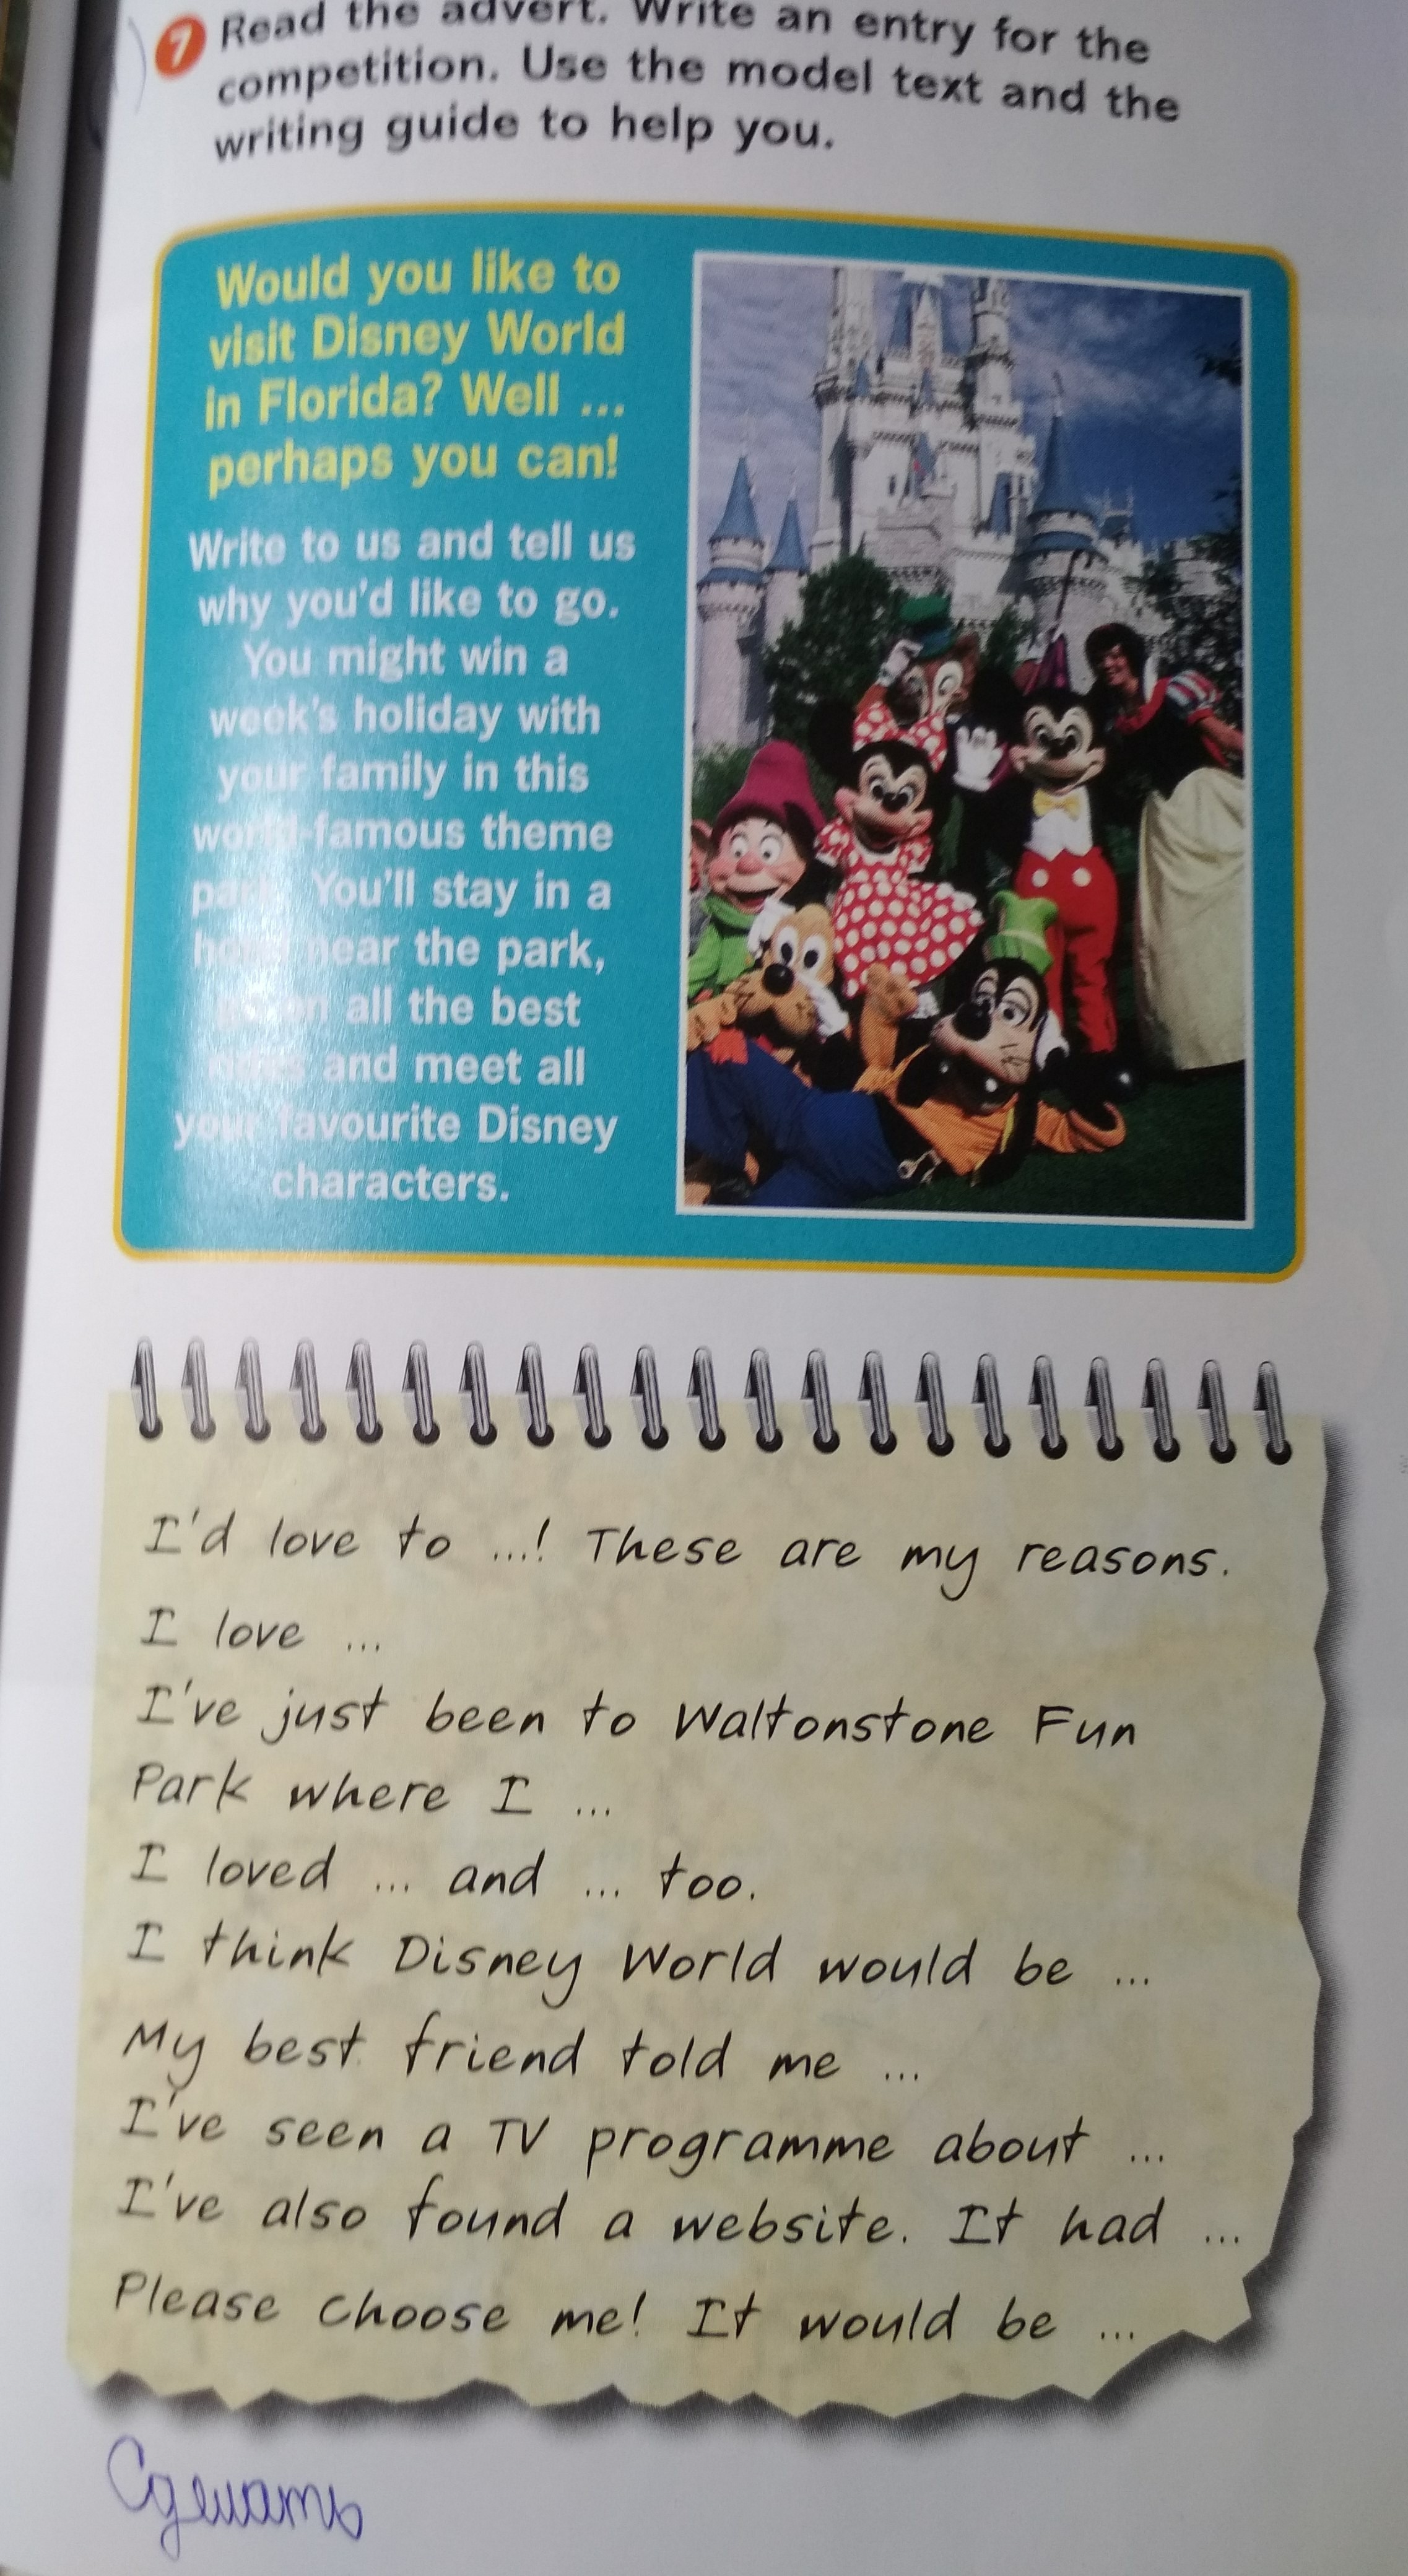 7 Read the advert. Write an entry for the
competition. Use the model text and the
writing guide to help you.
Would you like to
visit Disney World
in Florida? Well ...
perhaps you can!
Write to us and tell us
why you'd like to go.
You might win a
week's holiday with
your family in this
world-famous theme
park. You'll stay in a
hotel near the park,
all the best
rides and meet all
your favourite Disney
characters.
I'd love to ...! These are my reasons.
I love ...
I've just been to Waltonstone Fun
Park where I ...
I loved ... and ... too.
I think Disney World would be ...
My best friend told me ...
I've seen a TV programme about ...
I've also found a website. It had ...
Please choose me! It would be ...
Сделать